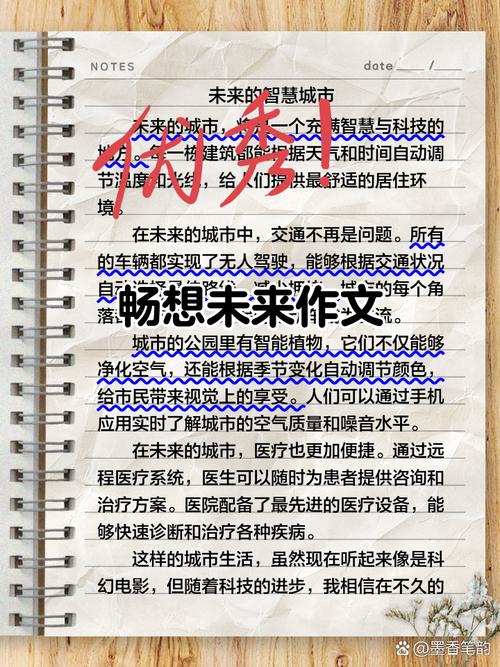 NOTES
date___/___
未来的智慧城市
优秀!
未来的城市，将是一个充满智慧与科技的
地方。每一栋建筑都能根据天气和时间自动调
节温度和光线，给人们提供最舒适的居住环
境。
在未来的城市中，交通不再是问题。所有
的车辆都实现了无人驾驶，能够根据交通状况
自动
的每个角
落
流。
畅想未来作文
城市的公园里有智能植物，它们不仅能够
净化空气，还能根据季节变化自动调节颜色，
给市民带来视觉上的享受。人们可以通过手机
应用实时了解城市的空气质量和噪音水平。
在未来的城市，医疗也更加便捷。通过远
程医疗系统，医生可以随时为患者提供咨询和
治疗方案。医院配备了最先进的医疗设备，能
够快速诊断和治疗各种疾病。
这样的城市生活，虽然现在听起来像是科
幻电影，但随着科技的进步，我相信在不久的
@墨香笔韵